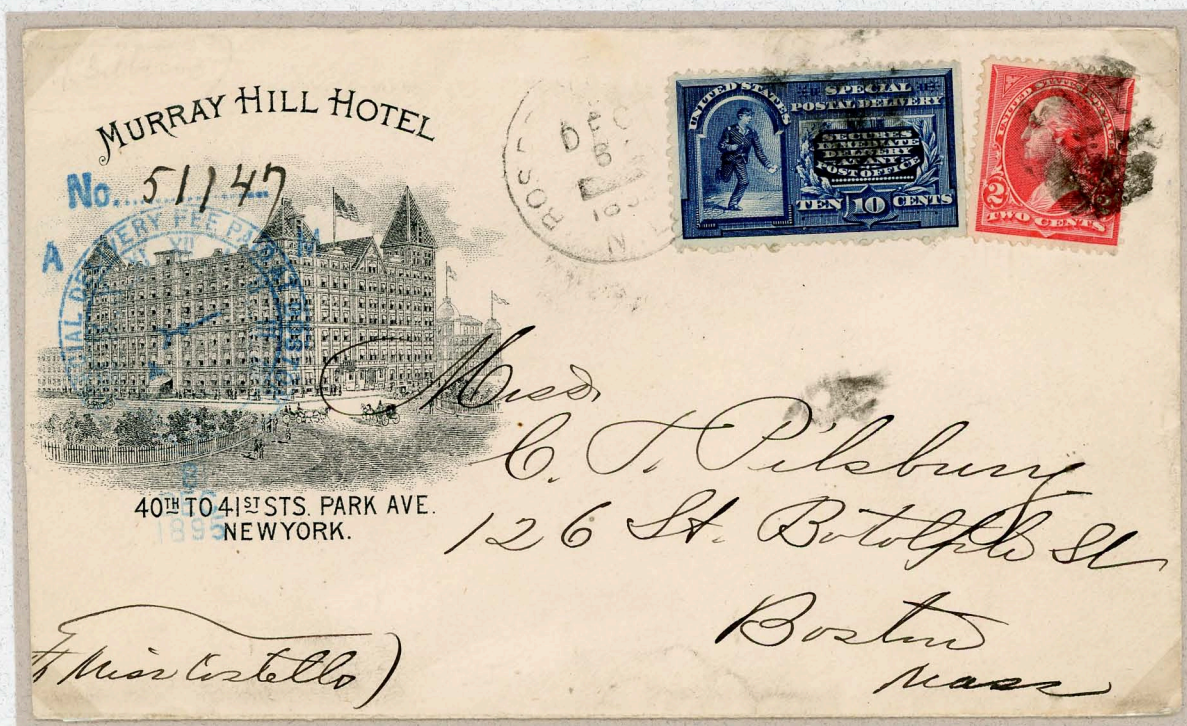 MURRAY HILL HOTEL
No. 51147
A M
SPECIAL DELIVERY FEE PAID AT BOSTON
VII
8
1895
40TH TO 41ST STS. PARK AVE.
NEW YORK.
DEC
UNITED STATES
SPECIAL
POSTAL DELIVERY
SECURES
IMMEDIATE
DELIVERY
AT ANY
POST OFFICE
TEN 10 CENTS
UNITED STATES POSTAGE
2 2
TWO CENTS
Miss
C. T. Pilsbury
126 St. Botolph St
Boston
Mass
Miss Costello)